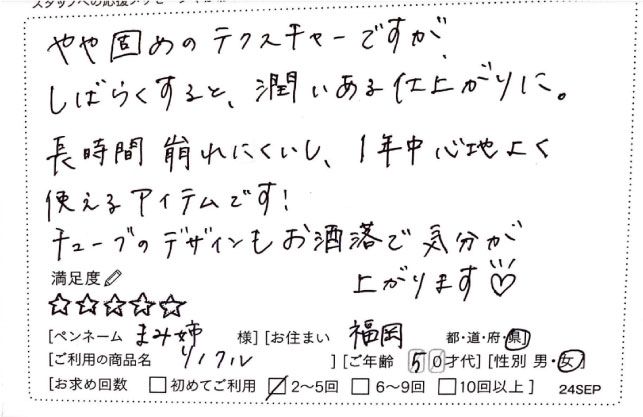 スタッフへの応援メッセージ
やや固めのテクスチャーですが、
しばらくすると、潤いある仕上がりに。
長時間崩れにくいし、1年中心地よく
使えるアイテムです!
チューブのデザインもお洒落で気分が
上がります♡
満足度
☆☆☆☆☆
[ペンネーム まみ姉 様] [お住まい 福岡 都・道・府・県]
[ご利用の商品名 リンクル ] [ご年齢 50才代] [性別 男・女]
[お求め回数 □初めてご利用 ☑2〜5回 □6〜9回 □10回以上] 24SEP